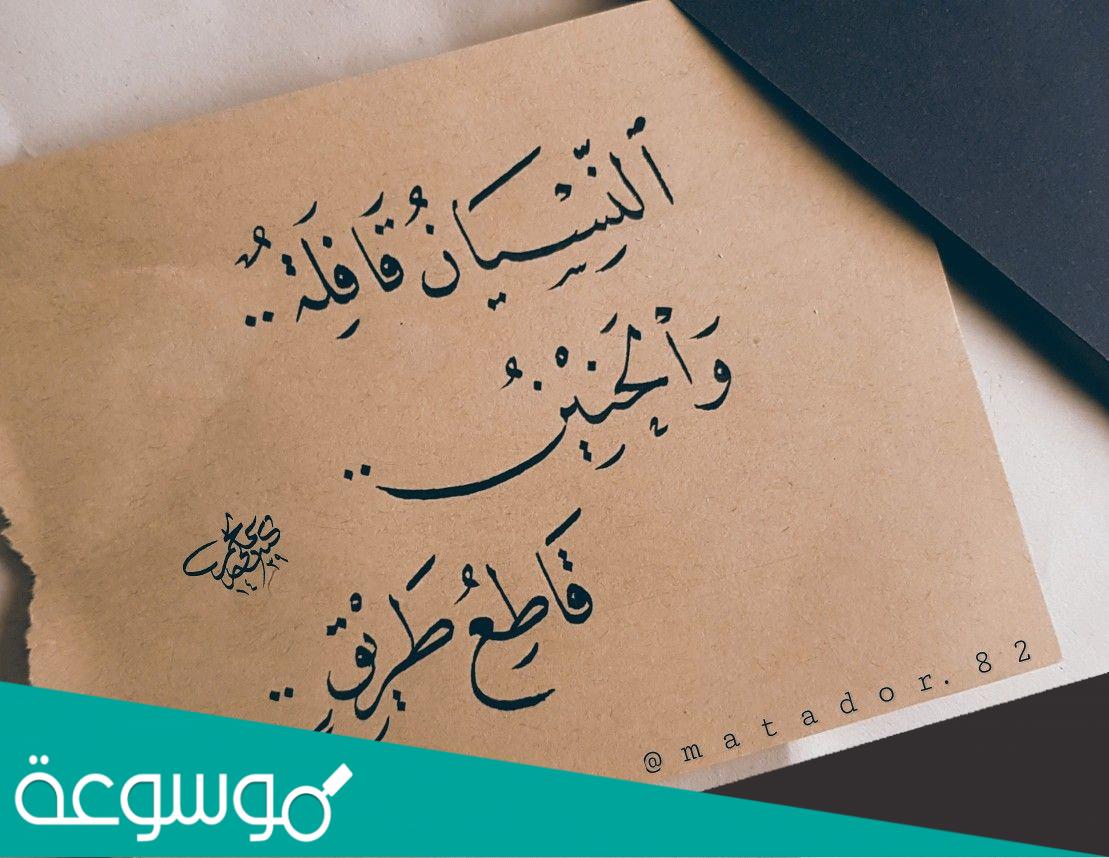 اَلنِّسْيَانُ قَافِلَةٌ ..
وَاْلحَنِيْنُ ..
قَاطِعُ طَرِيْقٍ ..
@matador.82
موسوعة